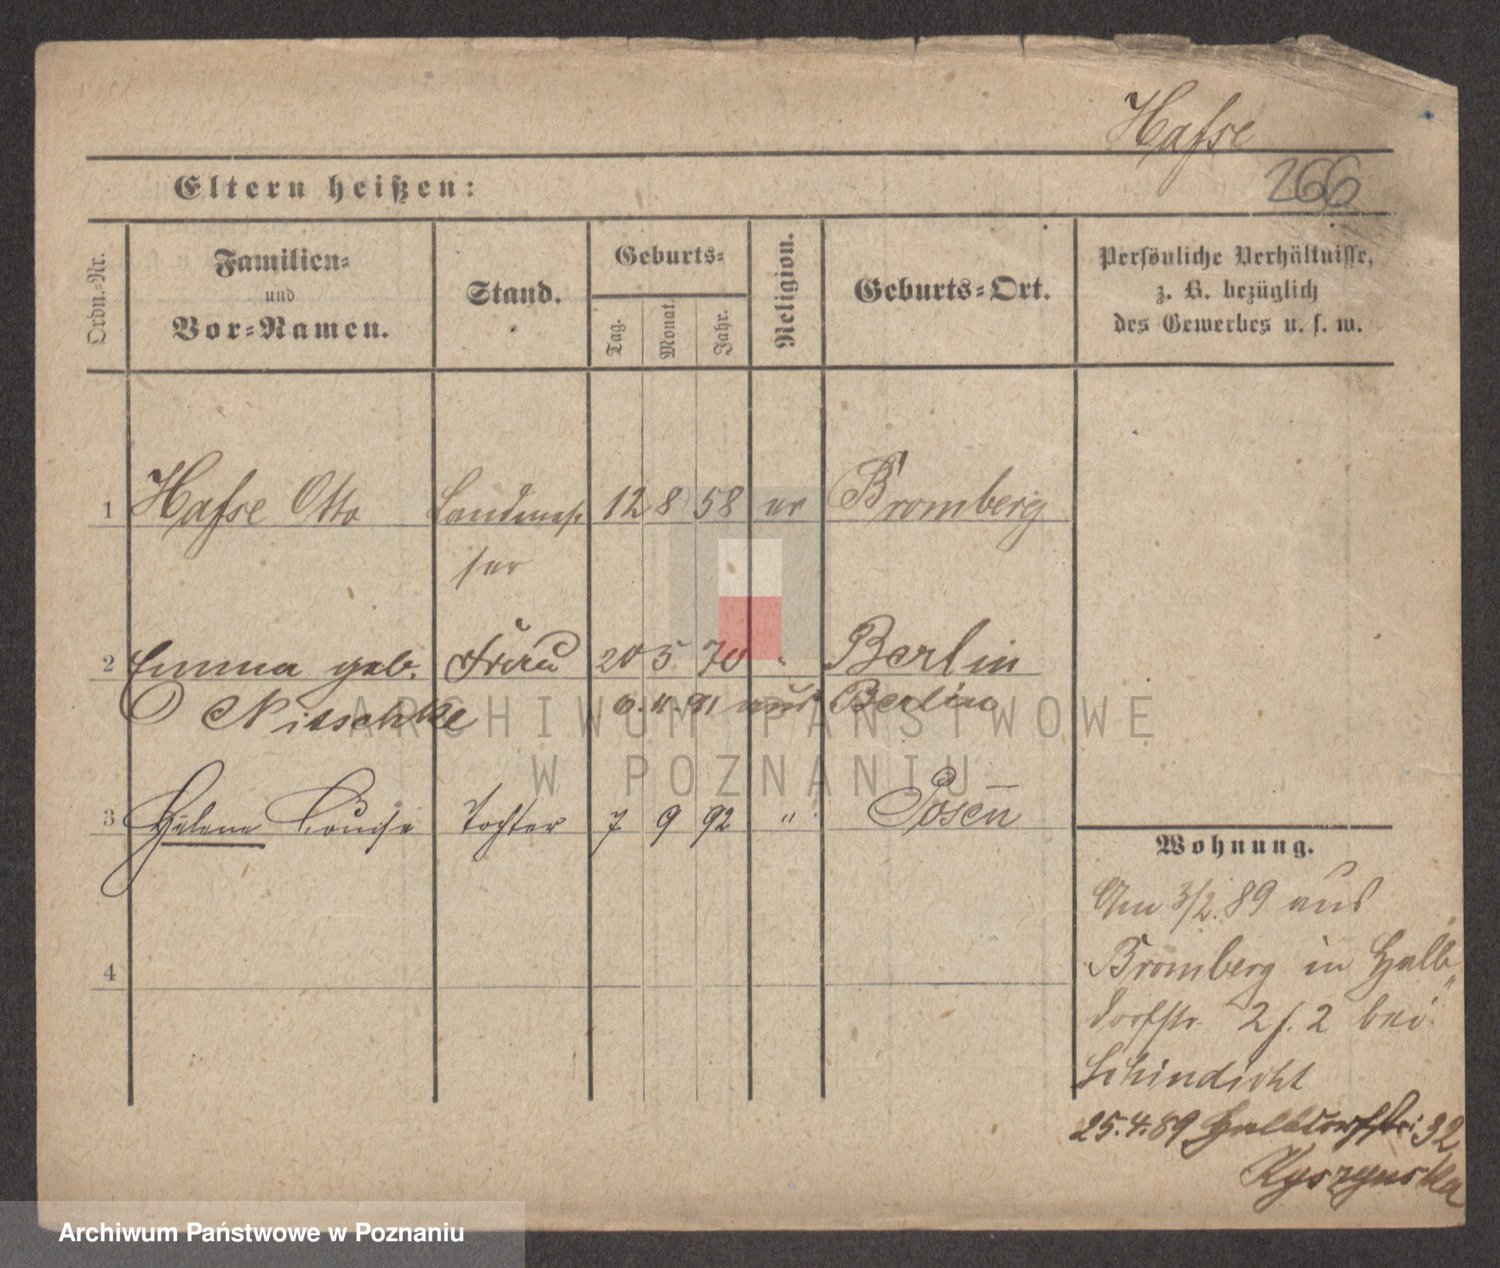 Hasse
266
Eltern heißen:
Ordn.-Nr.
Familien-
und
Vor-Namen.
Stand.
Geburts-
Tag.
Monat.
Jahr.
Religion.
Geburts-Ort.
Persönliche Verhältnisse,
z. B. bezüglich
des Gewerbes u. s. w.
1 Hasse Otto Landmes 12 8 58 ev Bromberg
ser
2 Emma geb. Frau 20 5 70 " Berlin
Nitschke 6.11.91 aus Berlin
3 Helene Louise Tochter 7 9 92 " Posen
4
Wohnung.
Am 3/2.89 aus
Bromberg in Halb-
dorfstr 2 f. 2 bei
Schindicht
25.4.89 Halbdorfstr 32
Kyszynska
ARCHIWUM PAŃSTWOWE
W POZNANIU
Archiwum Państwowe w Poznaniu